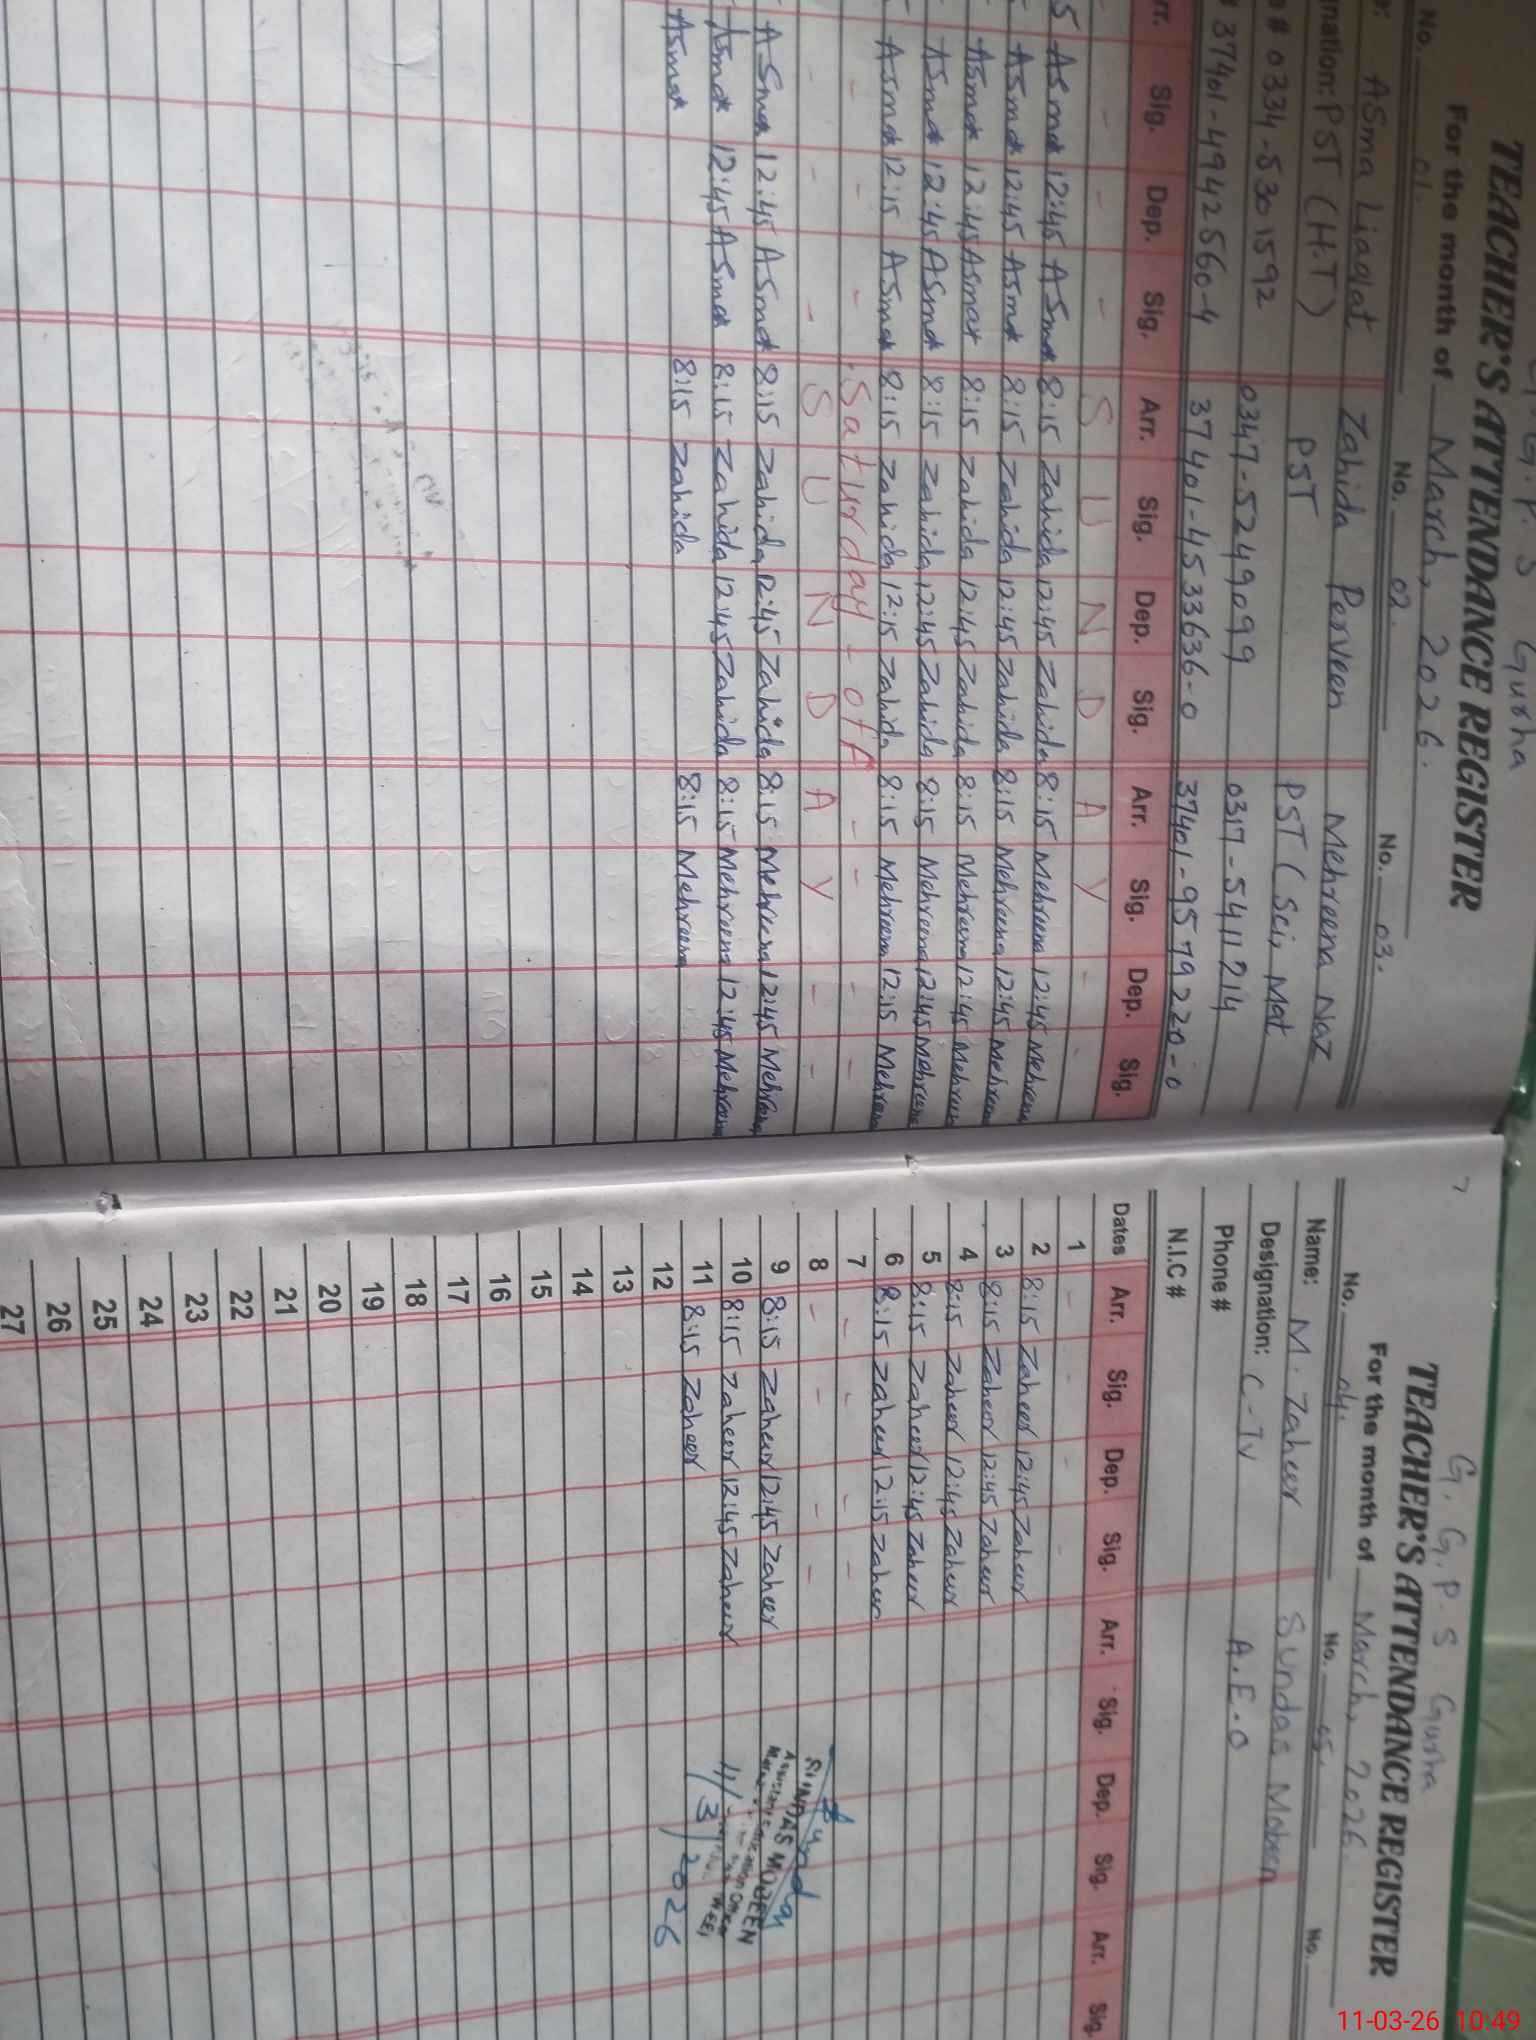 G.G.P.S Gusha
TEACHER'S ATTENDANCE REGISTER
For the month of March, 2026.
No. 01. No. 02. No. 03.
Asma Liaqat Zahida Perveen Mehreena Naz
gnation: PST (H.T) PST PST (Sci, Mat
# 0334-5301592 0347-5249099 0317-5411214
# 37401-4942560-4 37401-4533636-0 37401-9579220-0
rr. Sig. Dep. Sig. Arr. Sig. Dep. Sig. Arr. Sig. Dep. Sig.
- - - S U N D A Y - -
5 Asmat 12:45 Asmat 8:15 Zahida 12:45 Zahida 8:15 Mehreena 12:45 Mehreena
Asmat 12:45 Asmat 8:15 Zahida 12:45 Zahida 8:15 Mehreena 12:45 Mehreena
Asmat 12:45 Asmat 8:15 Zahida 12:45 Zahida 8:15 Mehreena 12:45 Mehreena
Asmat 12:45 Asmat 8:15 Zahida 12:45 Zahida 8:15 Mehreena 12:45 Mehreena
Asmat 12:15 Asmat 8:15 Zahida 12:15 Zahida 8:15 Mehreena 12:15 Mehreena
- - - Saturday - off - - - -
- - - S U N D A Y - -
Asmat 12:45 Asmat 8:15 Zahida 12:45 Zahida 8:15 Mehreena 12:45 Mehreena
Asmat 12:45 Asmat 8:15 Zahida 12:45 Zahida 8:15 Mehreena 12:45 Mehreena
Asmat 8:15 Zahida 8:15 Mehreena
7
G.G.P.S Gusha
TEACHER'S ATTENDANCE REGISTER
For the month of March, 2026.
No. 04. No. 05. No.
Name: M. Zaheer Sundas Mobeen
Designation: C-IV A.E.O
Phone #
N.I.C #
Dates Arr. Sig. Dep. Sig. Arr. Sig. Dep. Sig. Arr. Sig.
1 - - - -
2 8:15 Zaheer 12:45 Zaheer
3 8:15 Zaheer 12:45 Zaheer
4 8:15 Zaheer 12:45 Zaheer
5 8:15 Zaheer 12:45 Zaheer
6 8:15 Zaheer 12:15 Zaheer
7 - - - -
8 - - - -
9 8:15 Zaheer 12:45 Zaheer
10 8:15 Zaheer 12:45 Zaheer
11 8:15 Zaheer
12
13
14
15
16
17
18
19
20
21
22
23
24
25
26
27
SUNDAS MOBEEN
Assistant Education Officer
11/3/2026
11-03-26 10:49